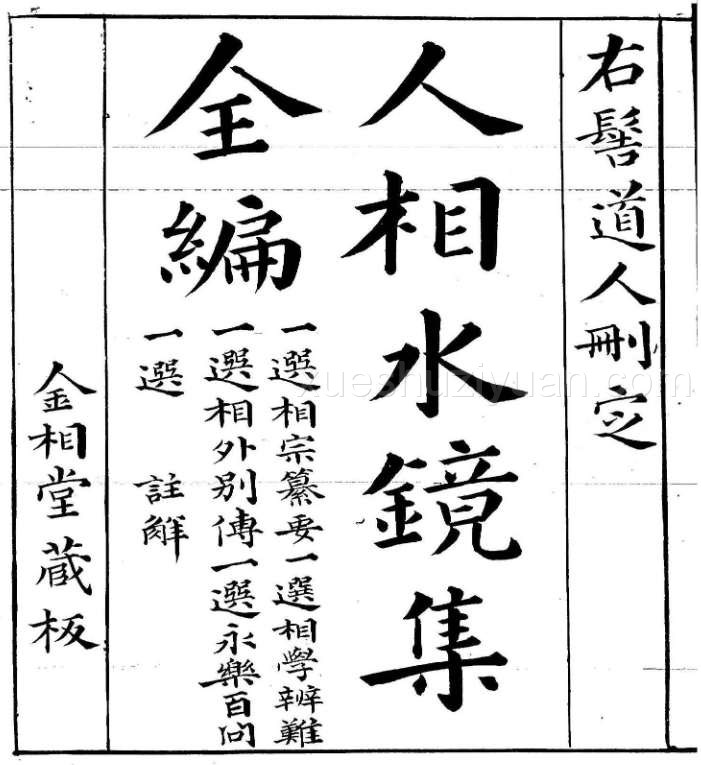 右髻道人刪定
人相水鏡集
全編
一選相宗纂要一選相學辨難
一選相外別傳一選永樂百問
一選 註解
金相堂藏板
xueshuziyuan.com